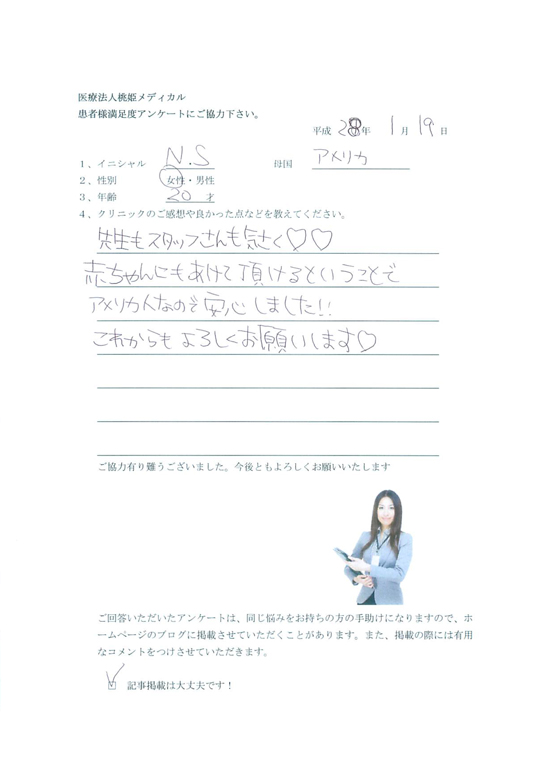 医療法人桃姫メディカル
患者様満足度アンケートにご協力下さい。
平成 28年 1月 19日
1、イニシャル N.S 母国 アメリカ
2、性別 女性・男性
3、年齢 20 才
4、クリニックのご感想や良かった点などを教えてください。
先生もスタッフさんも気さく♡♡
赤ちゃんにもあけて頂けるということで
アメリカ人なので安心しました!!
これからもよろしくお願いします♡
ご協力有り難うございました。今後ともよろしくお願いいたします
ご回答いただいたアンケートは、同じ悩みをお持ちの方の手助けになりますので、ホ
ームページのブログに掲載させていただくことがあります。また、掲載の際には有用
なコメントをつけさせていただきます。
☑ 記事掲載は大丈夫です!